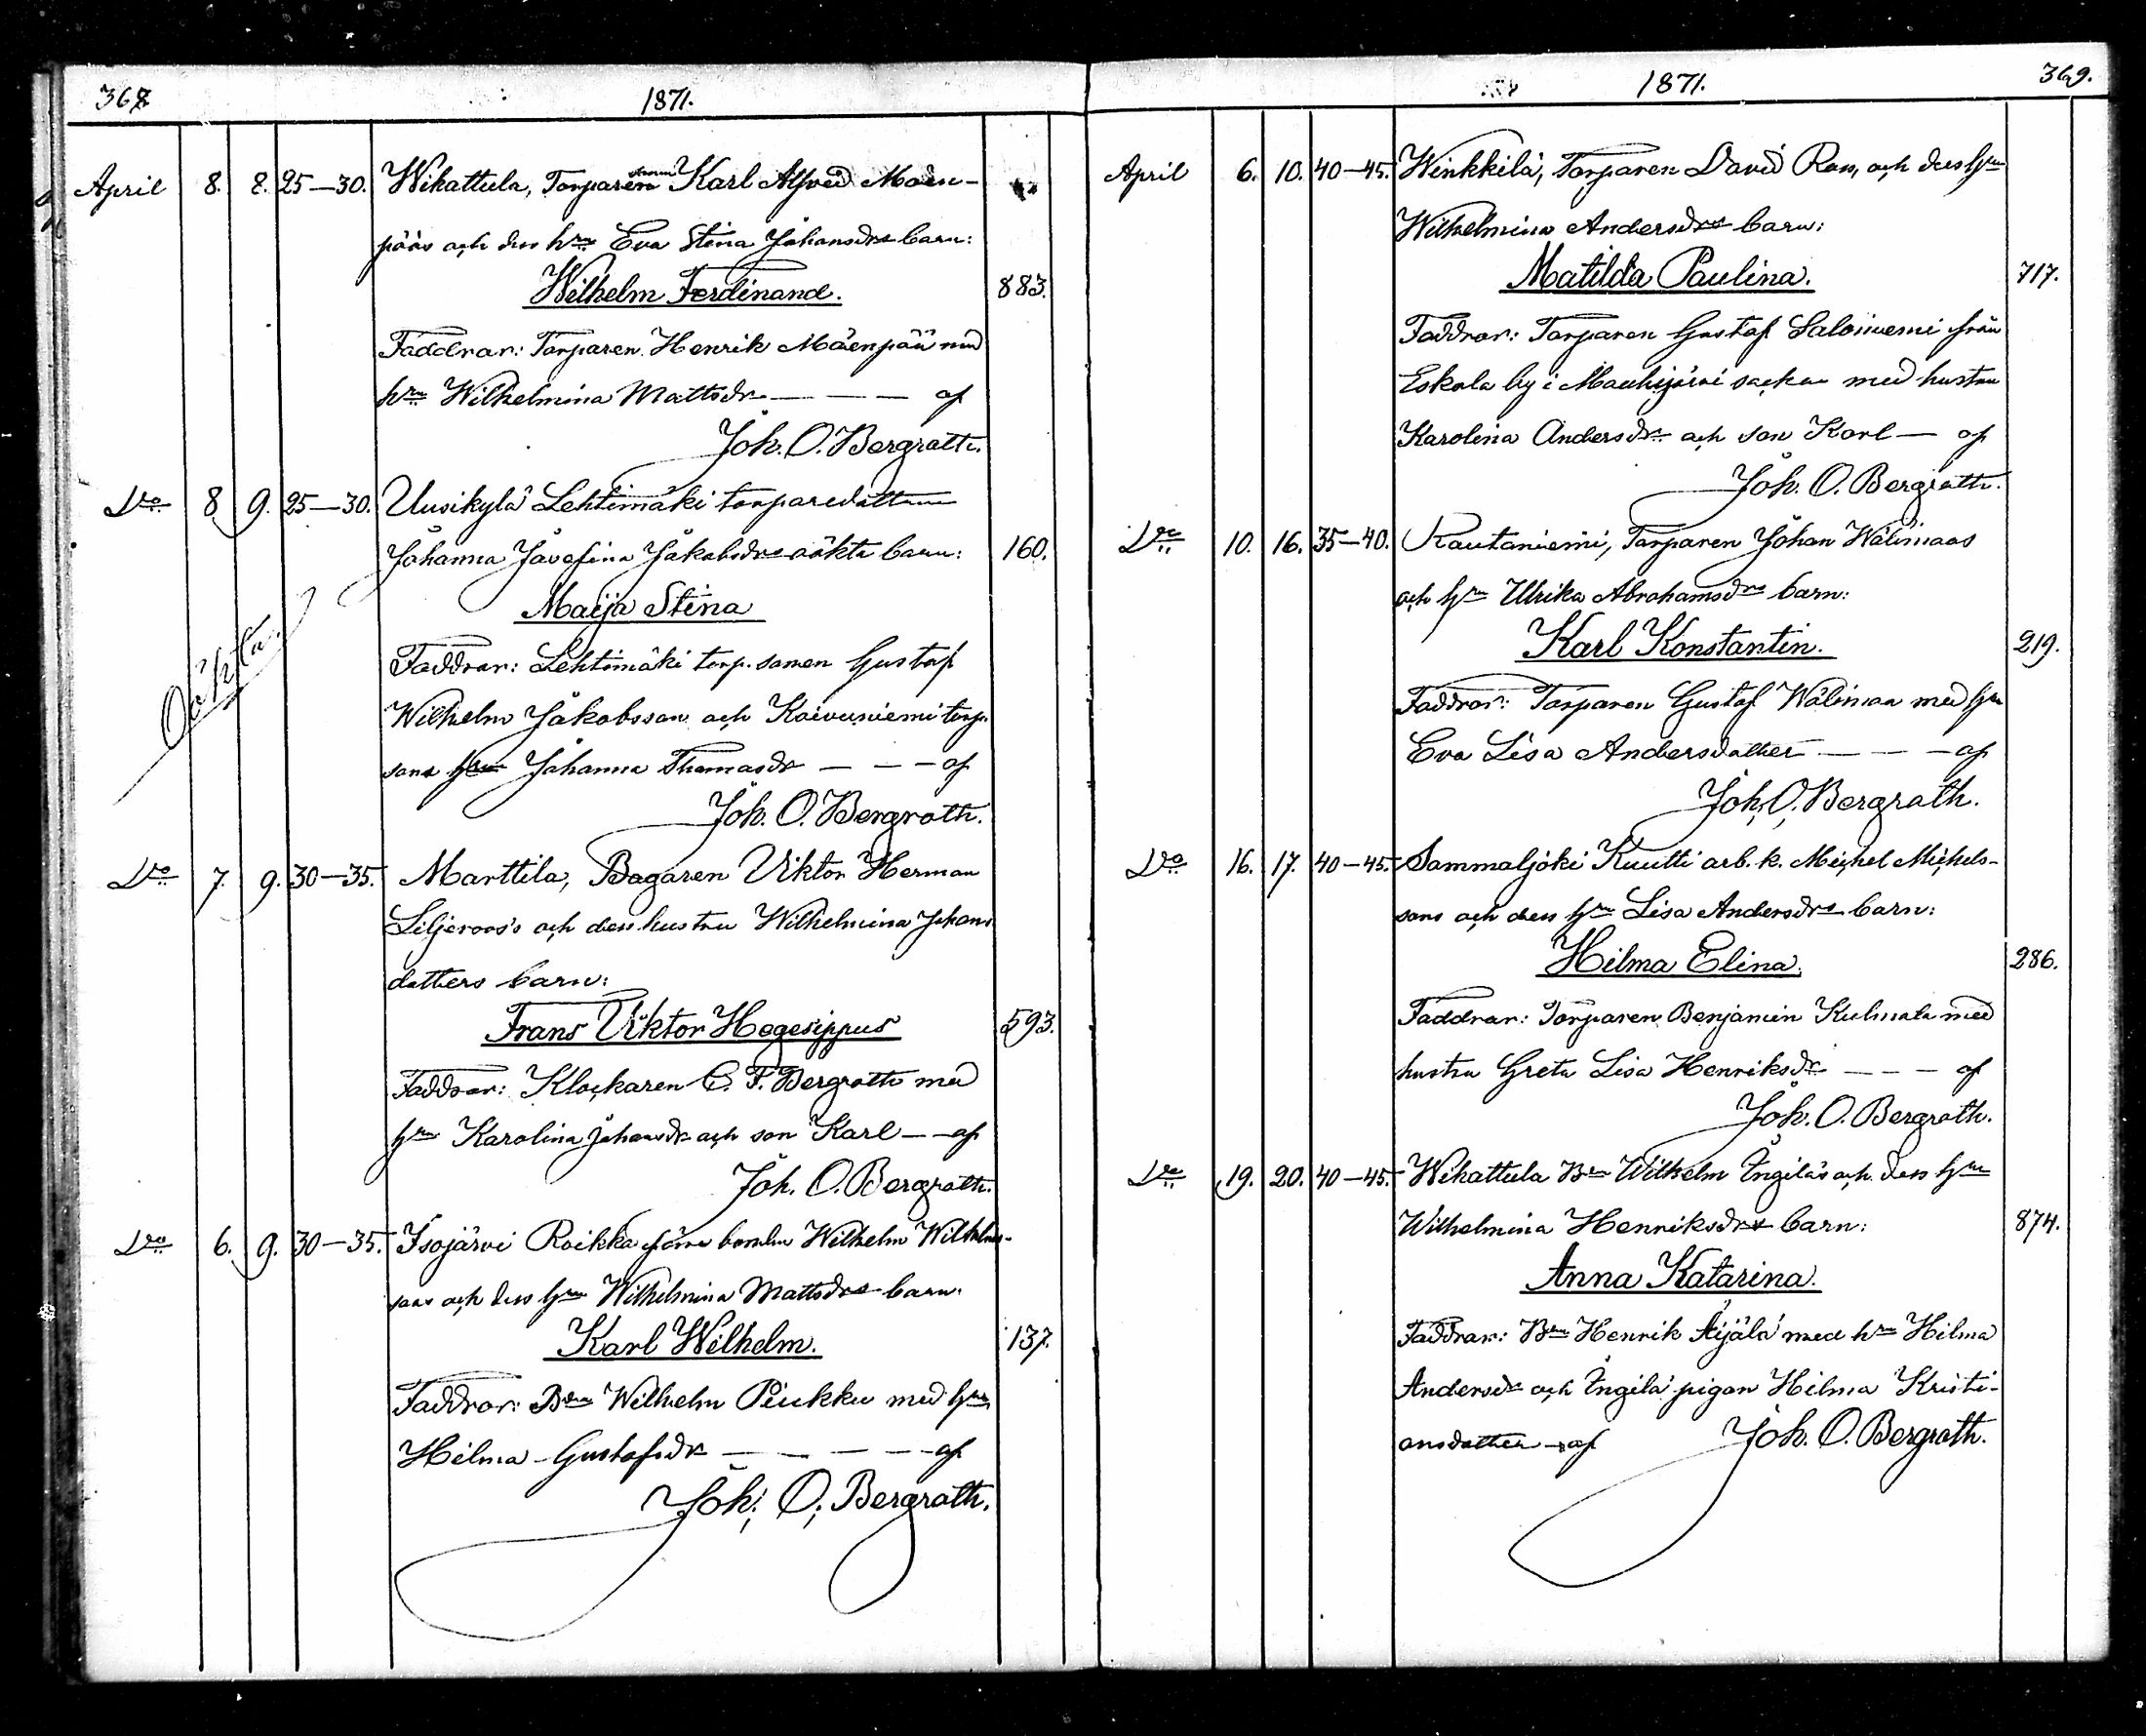 368
1871.
April 8. 8. 25—30. Wikattula, Torparen Karl Alfred Mäen-
pääs och dess hru Eva Stina Johansdrs barn:
Wilhelm Ferdinand. 883.
Faddrar: Torparen Henrik Mäenpää med
hru Wilhelmina Mattsdr — — — af
Joh. O. Bergroth.
Dro 8 9. 25—30. Uusikylä Lehtimäki torparedottren
Johanna Josefina Jakobsdrs oäkta barn: 160.
Maija Stina
Oäkta.
Faddrar: Lehtimäki torp. sonen Gustaf
Wilhelm Jakobsson och Koivuniemi torp.
sons hru Johanna Thomasdr — — — af
Joh. O. Bergroth.
Dro 7. 9. 30—35. Marttila, Bagaren Viktor Herman
Liljeroos's och dess hustru Wilhelmina Johans
dotters barn:
Frans Viktor Hegesippus 593.
Faddrar: Klockaren C. F. Bergroth med
hru Karolina Johansdr och son Karl — — af
Joh. O. Bergroth.
Dro 6. 9. 30—35. Isojärvi Roikka Wilhelm Wilhelms-
sons och dess hru Wilhelmina Mattsdrs barn.
Karl Wilhelm. 137.
Faddrar: Bdn Wilhelm Piukku med hru
Hilma Gustafsdr — — — — af
Joh. O. Bergroth.
369.
1871.
April 6. 10. 40—45. Winkkilä, Torparen David Ros, och dess hru
Wilhelmina Andersdrs barn:
Matilda Paulina. 717.
Faddrar: Torparen Gustaf Saloniemi från
Eskola by i Mouhijärvi socken med hustru
Karolina Andersdr och son Karl — af
Joh. O. Bergroth.
Dro 10. 16. 35—40. Rautaniemi, Torparen Johan Wälimaas
och hru Ulrika Abrahamsdrs barn:
Karl Konstantin. 219.
Faddrar: Torparen Gustaf Wälimaa med hru
Eva Lisa Andersdotter — — — af
Joh. O. Bergroth.
Dro 16. 17. 40—45. Sammaljoki Kuutti arb. k. Michel Michels-
sons och dess hru Lisa Andersdrs barn:
Hilma Elina. 286.
Faddrar: Torparen Benjamin Kulmala med
hustru Greta Lisa Henriksdr — — — af
Joh. O. Bergroth.
Dro 19. 20. 40—45. Wikattula Bn Wilhelm Ingiläs och dess hru
Wilhelmina Henriksdrs barn: 874.
Anna Katarina.
Faddrar: Bn Henrik Äijälä med hru Hilma
Andersdr och Ingilä pigan Hilma Kristi-
ansdotter — af Joh. O. Bergroth.